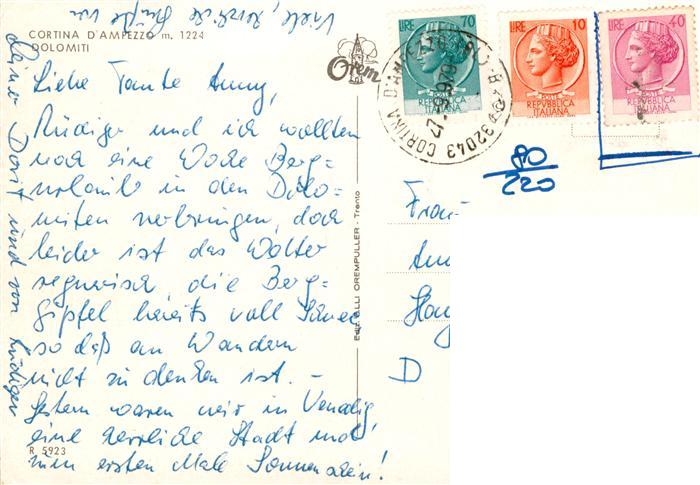 CORTINA D'AMPEZZO m. 1224
DOLOMITI
Liebe Tante Anny,
Rüdiger und ich wollten
noch eine Woche Berg-
urlaub in den Dolo-
miten verbringen, doch
leider ist das Wetter
regnerisch, die Berg-
gipfel bereits voll Schnee
so daß an Wandern
nicht zu denken ist. -
Gestern waren wir in Venedig,
eine herrliche Stadt und
zum ersten Male Sonnenschein!
Viele, herzliche Grüße von
deiner Dorit und von Rüdiger
R 5923
Orem
Ediz. F.LLI OREMPULLER - Trento
LIRE 70
POSTE
REPVBBLICA
ITALIANA
LIRE 10
POSTE
REPVBBLICA
ITALIANA
LIRE 40
POSTE
REPVBBLICA
ITALIANA
32043 CORTINA D'AMPEZZO
80
220
Frau
D